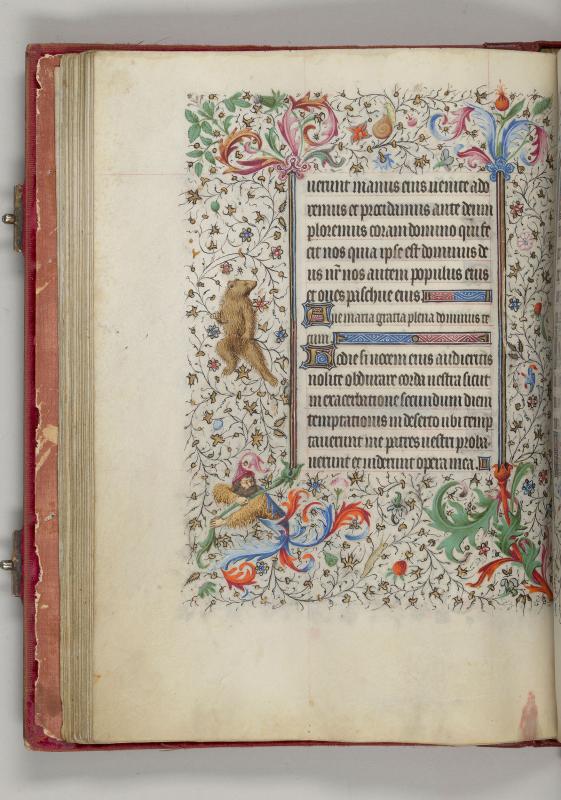 uerunt manus eius uenite ado
remus et procidamus ante deum
ploremus coram domino qui fe
cit nos quia ipse est dominus de
us nr̄ nos autem populus eius
et oues pascue eius
Aue maria gratia plena dominus te
cum
Hodie si uocem eius audieritis
nolite obdurare corda uestra sicut
in exacerbatione secundum diem
temptationis in deserto ubi temp
tauerunt me patres uestri proba
uerunt et uiderunt opera mea.